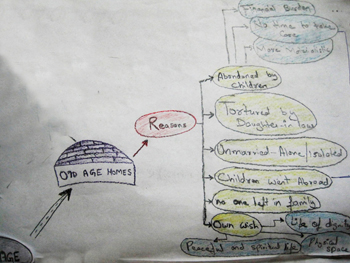 Financial Burden
No time to take
Care
Abandoned by
Children
Reasons
Tortured by
Daughter in law
OLD AGE HOMES
Unmarried-Alone/Isolated
Children Went Abroad
no one left in family
Own wish
Life of dignity
Peaceful and spiritual life
Physical
space
AGE